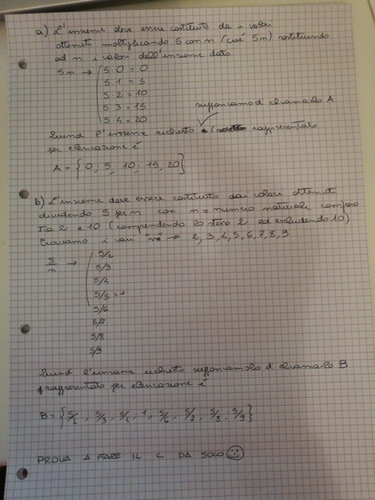 a) L'insieme deve essere costituito da i valori
ottenuti moltiplicando 5 con n (cioè 5n) sostituendo
ad n i valori dell'insieme dato
5n → 5·0 = 0
5·1 = 5
5·2 = 10
5·3 = 15
5·4 = 20
supponiamo di chiamarlo A
Quindi l'insieme richiesto è rappresentato
per elencazione è
A = {0, 5, 10, 15, 20}
b) L'insieme deve essere costituito dai valori ottenuti
dividendo 5 per n con n = numero naturale compreso
tra 2 e 10 (comprendendo lo stesso 2 ed escludendo 10)
Troviamo i vari "n" → 2, 3, 4, 5, 6, 7, 8, 9
5/n → 5/2
5/3
5/4
5/5 = 1
5/6
5/7
5/8
5/9
Quindi l'insieme richiesto supponiamolo di chiamarlo B
rappresentato per elencazione è
B = {5/2, 5/3, 5/4, 1, 5/6, 5/7, 5/8, 5/9}
PROVA A FARE IL C DA SOLO